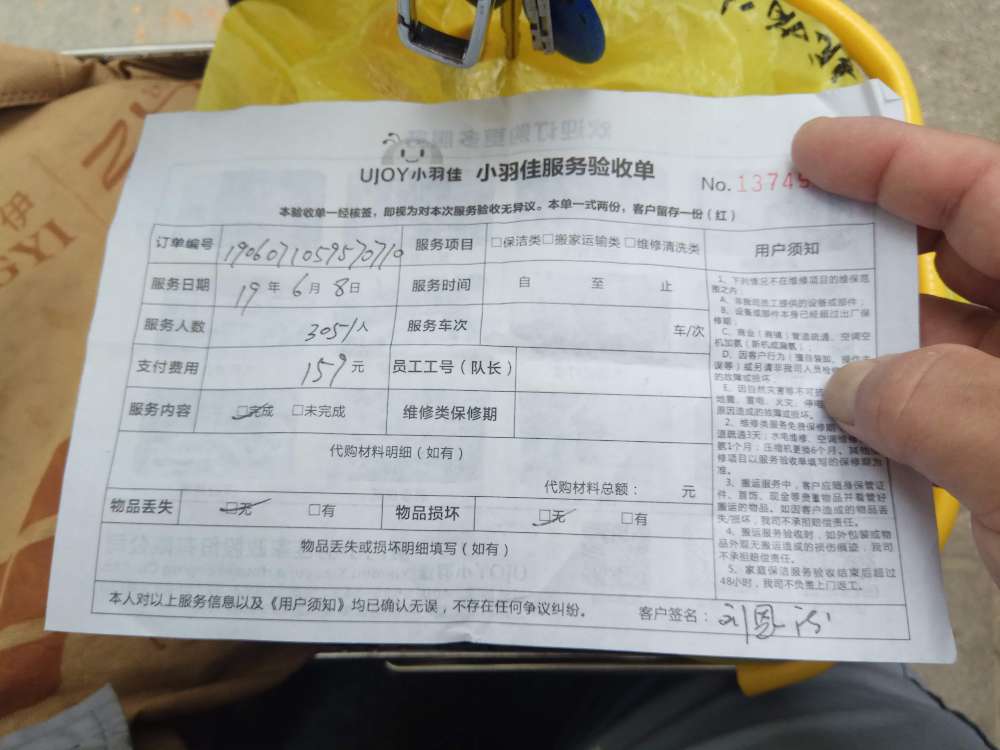 UJOY小羽佳 小羽佳服务验收单
No. 13745
本验收单一经核签，即视为对本次服务验收无异议。本单一式两份，客户留存一份（红）
订单编号 1906071059570710 服务项目 □保洁类□搬家运输类□维修清洗类
服务日期 19 年 6 月 8 日 服务时间 自 至 止
服务人数 3051 人 服务车次 车/次
支付费用 159 元 员工工号（队长）
服务内容 □完成 □未完成 维修类保修期
代购材料明细（如有）
代购材料总额： 元
物品丢失 □无 □有 物品损坏 □无 □有
物品丢失或损坏明细填写（如有）
本人对以上服务信息以及《用户须知》均已确认无误，不存在任何争议纠纷。 客户签名：
用户须知
1、下列情况不在维修项目的维保范
围之内：
A、非我司员工提供的设备或部件；
B、设备或部件本身已经超过出厂保
修期；
C、商业（商铺）管道疏通、空调空
机加氨（新机或漏氨）；
D、因客户行为（擅自装卸、操作
误等）或另请非我司人员检修
的故障或损坏
E、因自然灾害等不可抗
地震、雷电、火灾、停电
原因造成的故障或损坏。
2、维修类服务免费保修期
道疏通3天；水电维修、空调维修
氨1个月；压缩机更换6个月。其他
修项目以服务验收单填写的保修期为
准。
3、搬运服务中，客户应随身保管证
件、首饰、现金等贵重物品并看管好
搬运的物品。如因客户造成的物品丢
失/损坏，我司不承担赔偿责任。
4、搬运服务验收时，如外包装或物
品外观无搬运造成的损伤痕迹，我司
不承担赔偿责任。
5、家庭保洁服务验收结束后超过
48小时，我司不负责上门返工。
伊
GYI